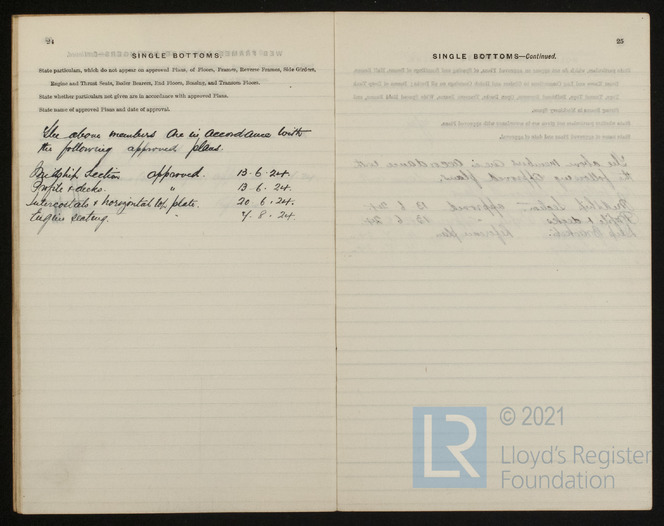 24
SINGLE BOTTOMS.
State particulars, which do not appear on approved Plans, of Floors, Frames, Reverse Frames, Side Girders,
Engine and Thrust Seats, Boiler Bearers, End Floors, Scantlg. and Transom Floors.
State whether particulars not given are in accordance with approved Plans.
State name of approved Plans and date of approval.
The above members are in accordance with
the following approved plans.
Midship Section approved. 13-6-24.
Profile & decks. " 13 6.24.
Intercostals & horizontal plate. 20 6.24.
Engine seating. " 8.24.
25
SINGLE BOTTOMS—Continued.
LR
© 2021
Lloyd's Register
Foundation